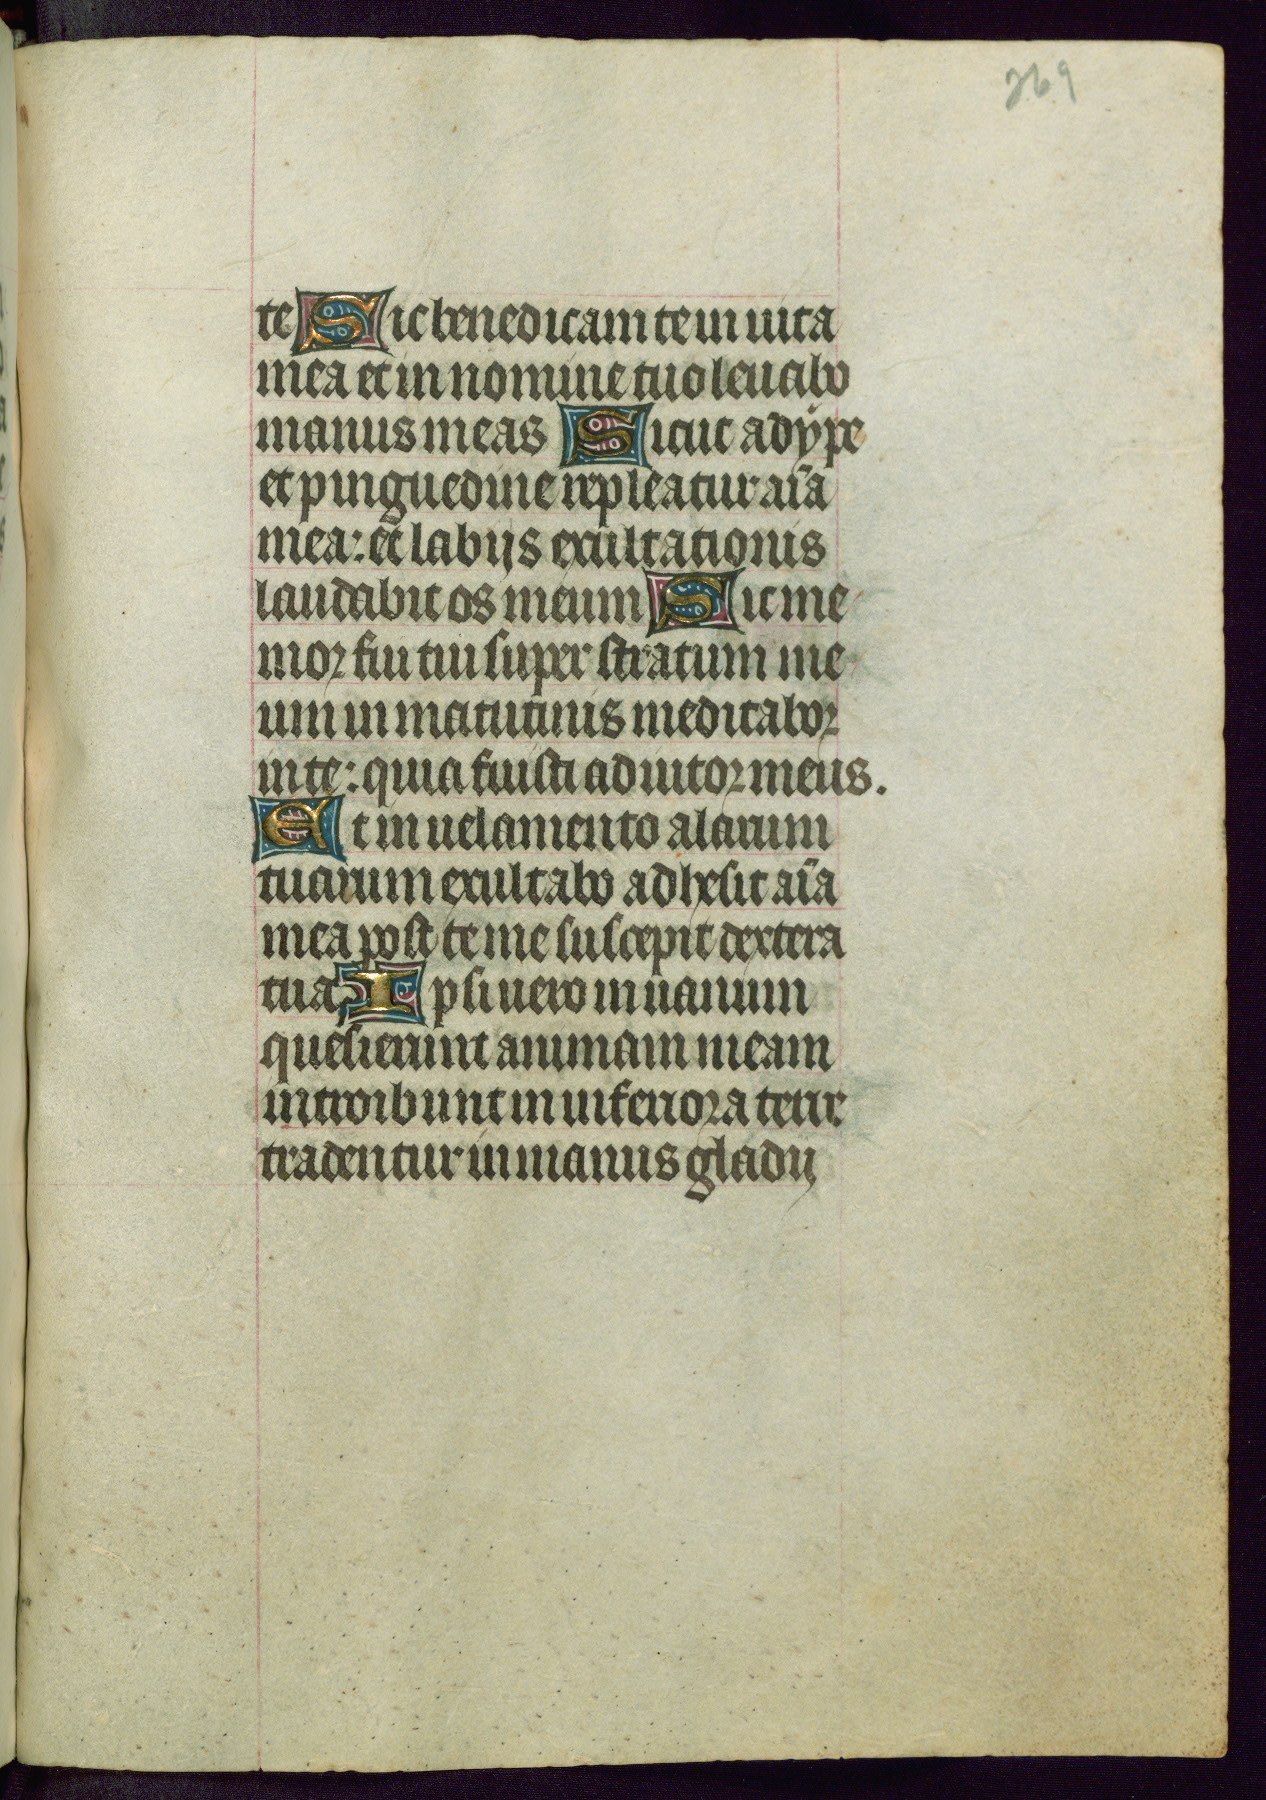 269
te Sic benedicam te in uita
mea et in nomine tuo leuabo
manus meas Sicut adype
et pinguedine repleatur aīa
mea: et labijs exultationis
laudabit os meum Sic me
mor fui tui super stratum me
um in matutinis meditabor
in te: quia fuisti adiutor meus.
Et in uelamento alarum
tuarum exultabo adhesit aīa
mea post te me suscepit dextera
tua, Ipsi uero in uanum
quesierunt animam meam
introibunt in inferiora terre
tradentur in manus gladij